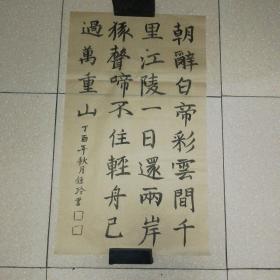 朝辭白帝彩雲間千
里江陵一日還兩岸
猿聲啼不住輕舟已
過萬重山
丁酉年秋月任玲書